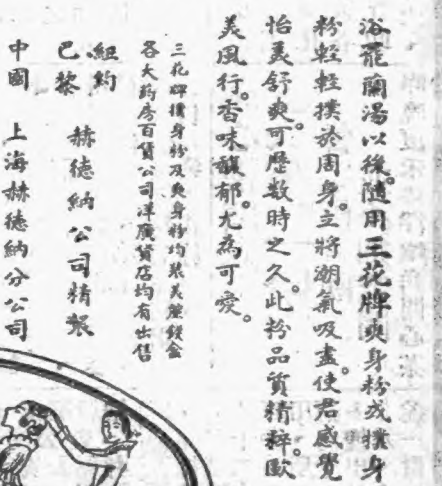 浴罷蘭湯以後。隨用三花牌爽身粉或撲身
粉輕輕撲於周身。立將潮氣吸盡。使君感覺
怡美舒爽。可歷數時之久。此粉品質精粹。歐
美風行。香味馥郁。尤為可愛。
三花牌撲身粉及爽身粉均裝美麗鐵盒
各大葯房百貨公司洋廣貨店均有出售
紐約 赫德納公司精製
巴黎
中國 上海赫德納分公司